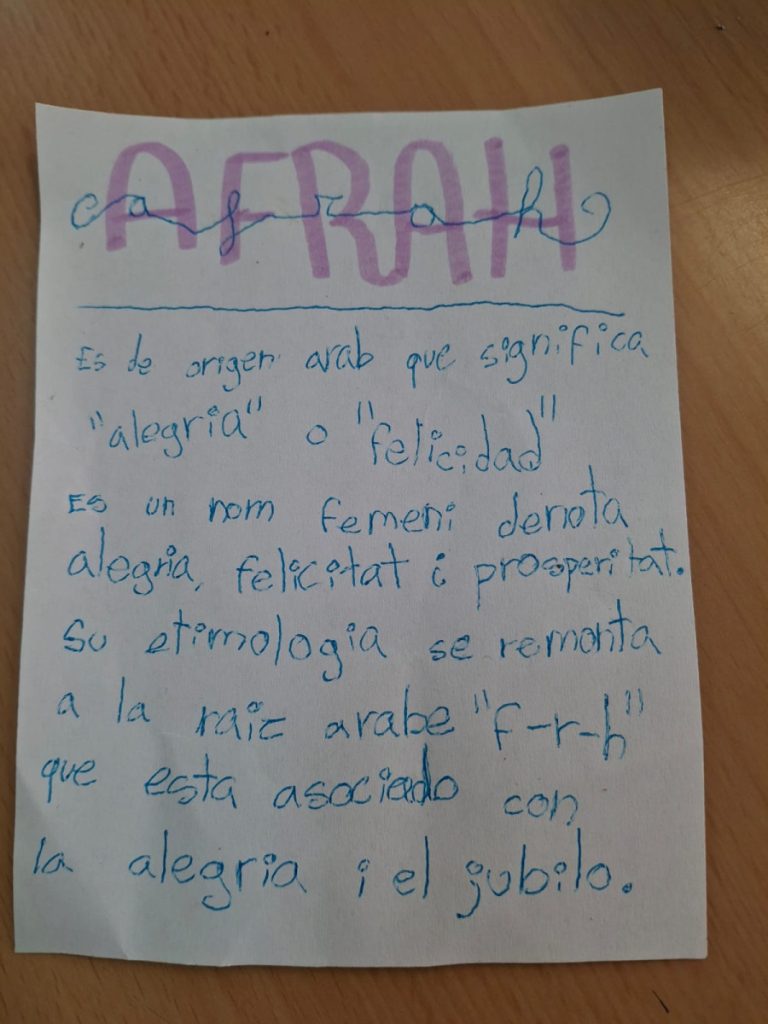 AFRAH
afrah
Es de origen arab que significa
"alegria" o "felicidad"
Es un nom femeni denota
alegria, felicitat i prosperitat.
Su etimologia se remonta
a la raiz arabe "f-r-h"
que esta asociado con
la alegria i el jubilo.